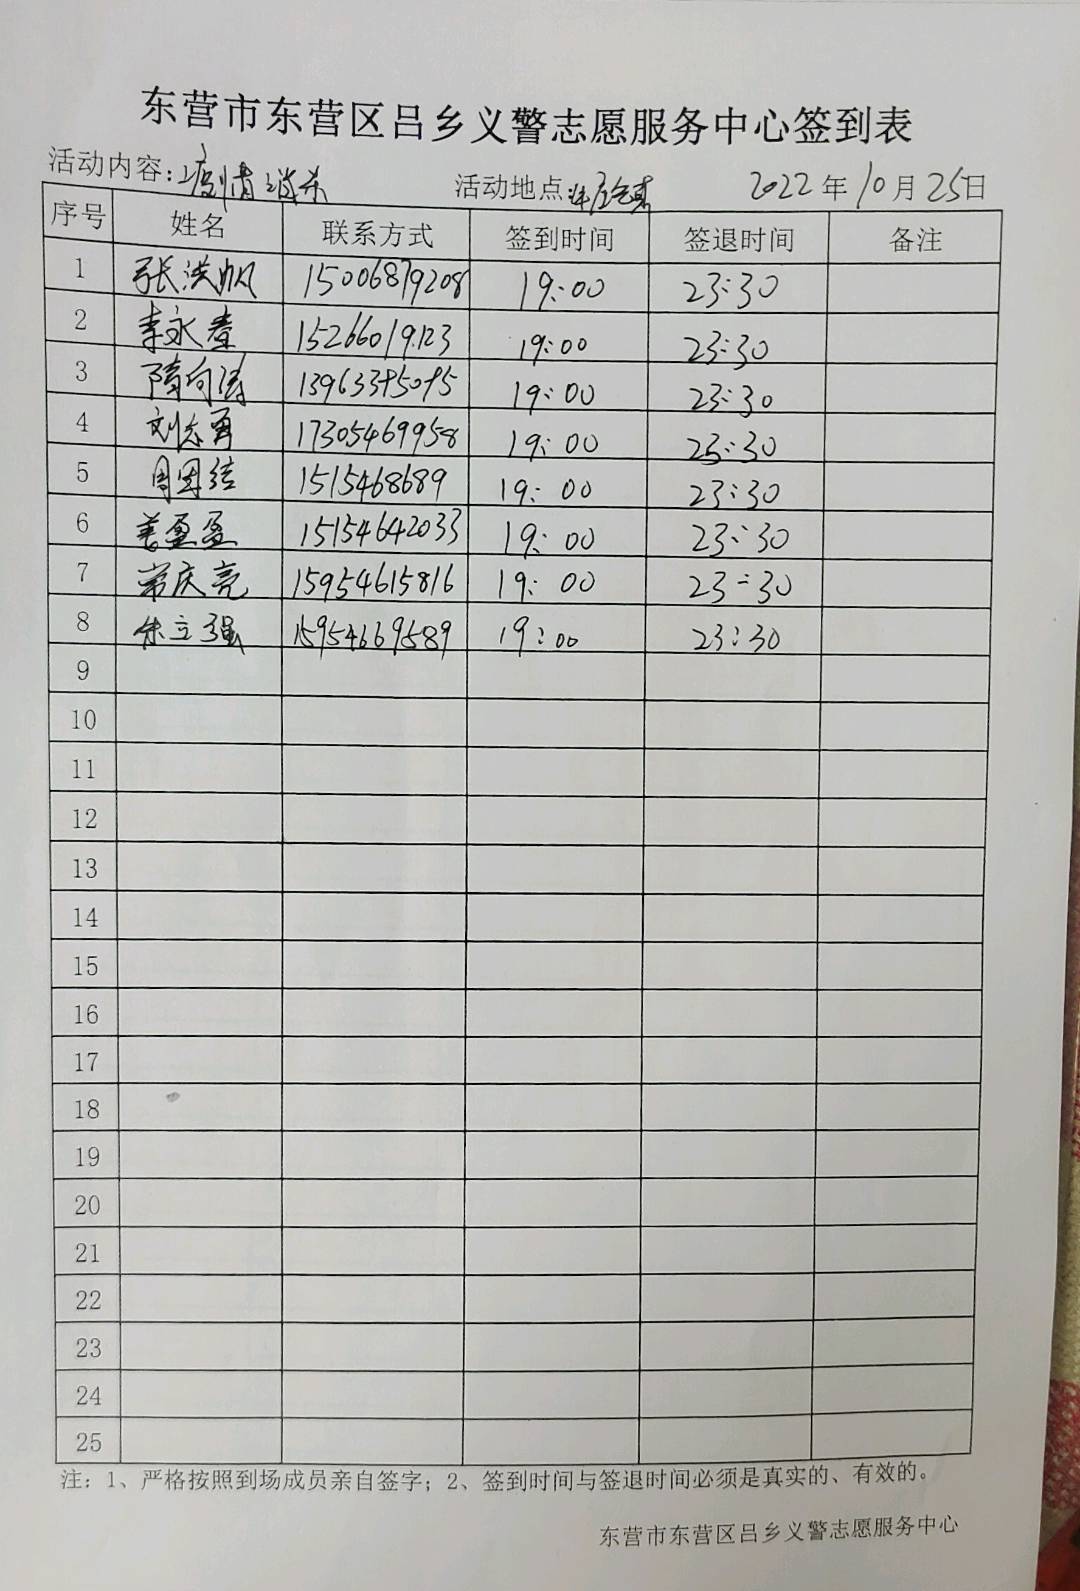 东营市东营区吕乡义警志愿服务中心签到表
活动内容: 疫情消杀 活动地点 2022年10月25日
序号 姓名 联系方式 签到时间 签退时间 备注
1 张洪帆 15006879208 19:00 23:30
2 李永春 15266019123 19:00 23:30
3 隋向涛 19:00 23:30
4 刘志勇 17305469958 19:00 23:30
5 1515468689 19:00 23:30
6 姜盈盈 15154642033 19:00 23:30
7 常庆亮 15954615816 19:00 23:30
8 朱立强 15954669589 19:00 23:30
9
10
11
12
13
14
15
16
17
18
19
20
21
22
23
24
25
注：1、严格按照到场成员亲自签字；2、签到时间与签退时间必须是真实的、有效的。
东营市东营区吕乡义警志愿服务中心